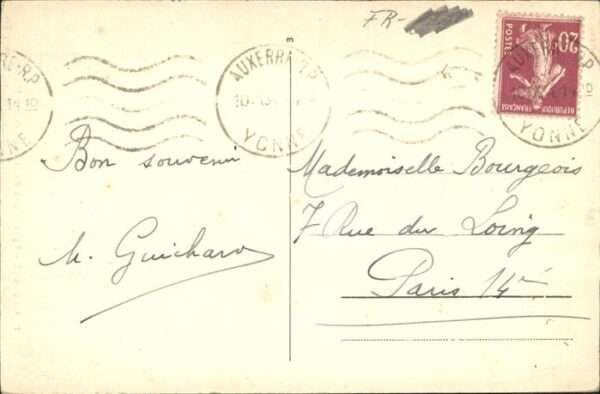 FR-
AUXERRE R.P
YONNE
20c
POSTES
REPUBLIQUE FRANÇAISE
Bon souvenir
M. Guichard
Mademoiselle Bourgeois
7 Rue du Loing
Paris 14e